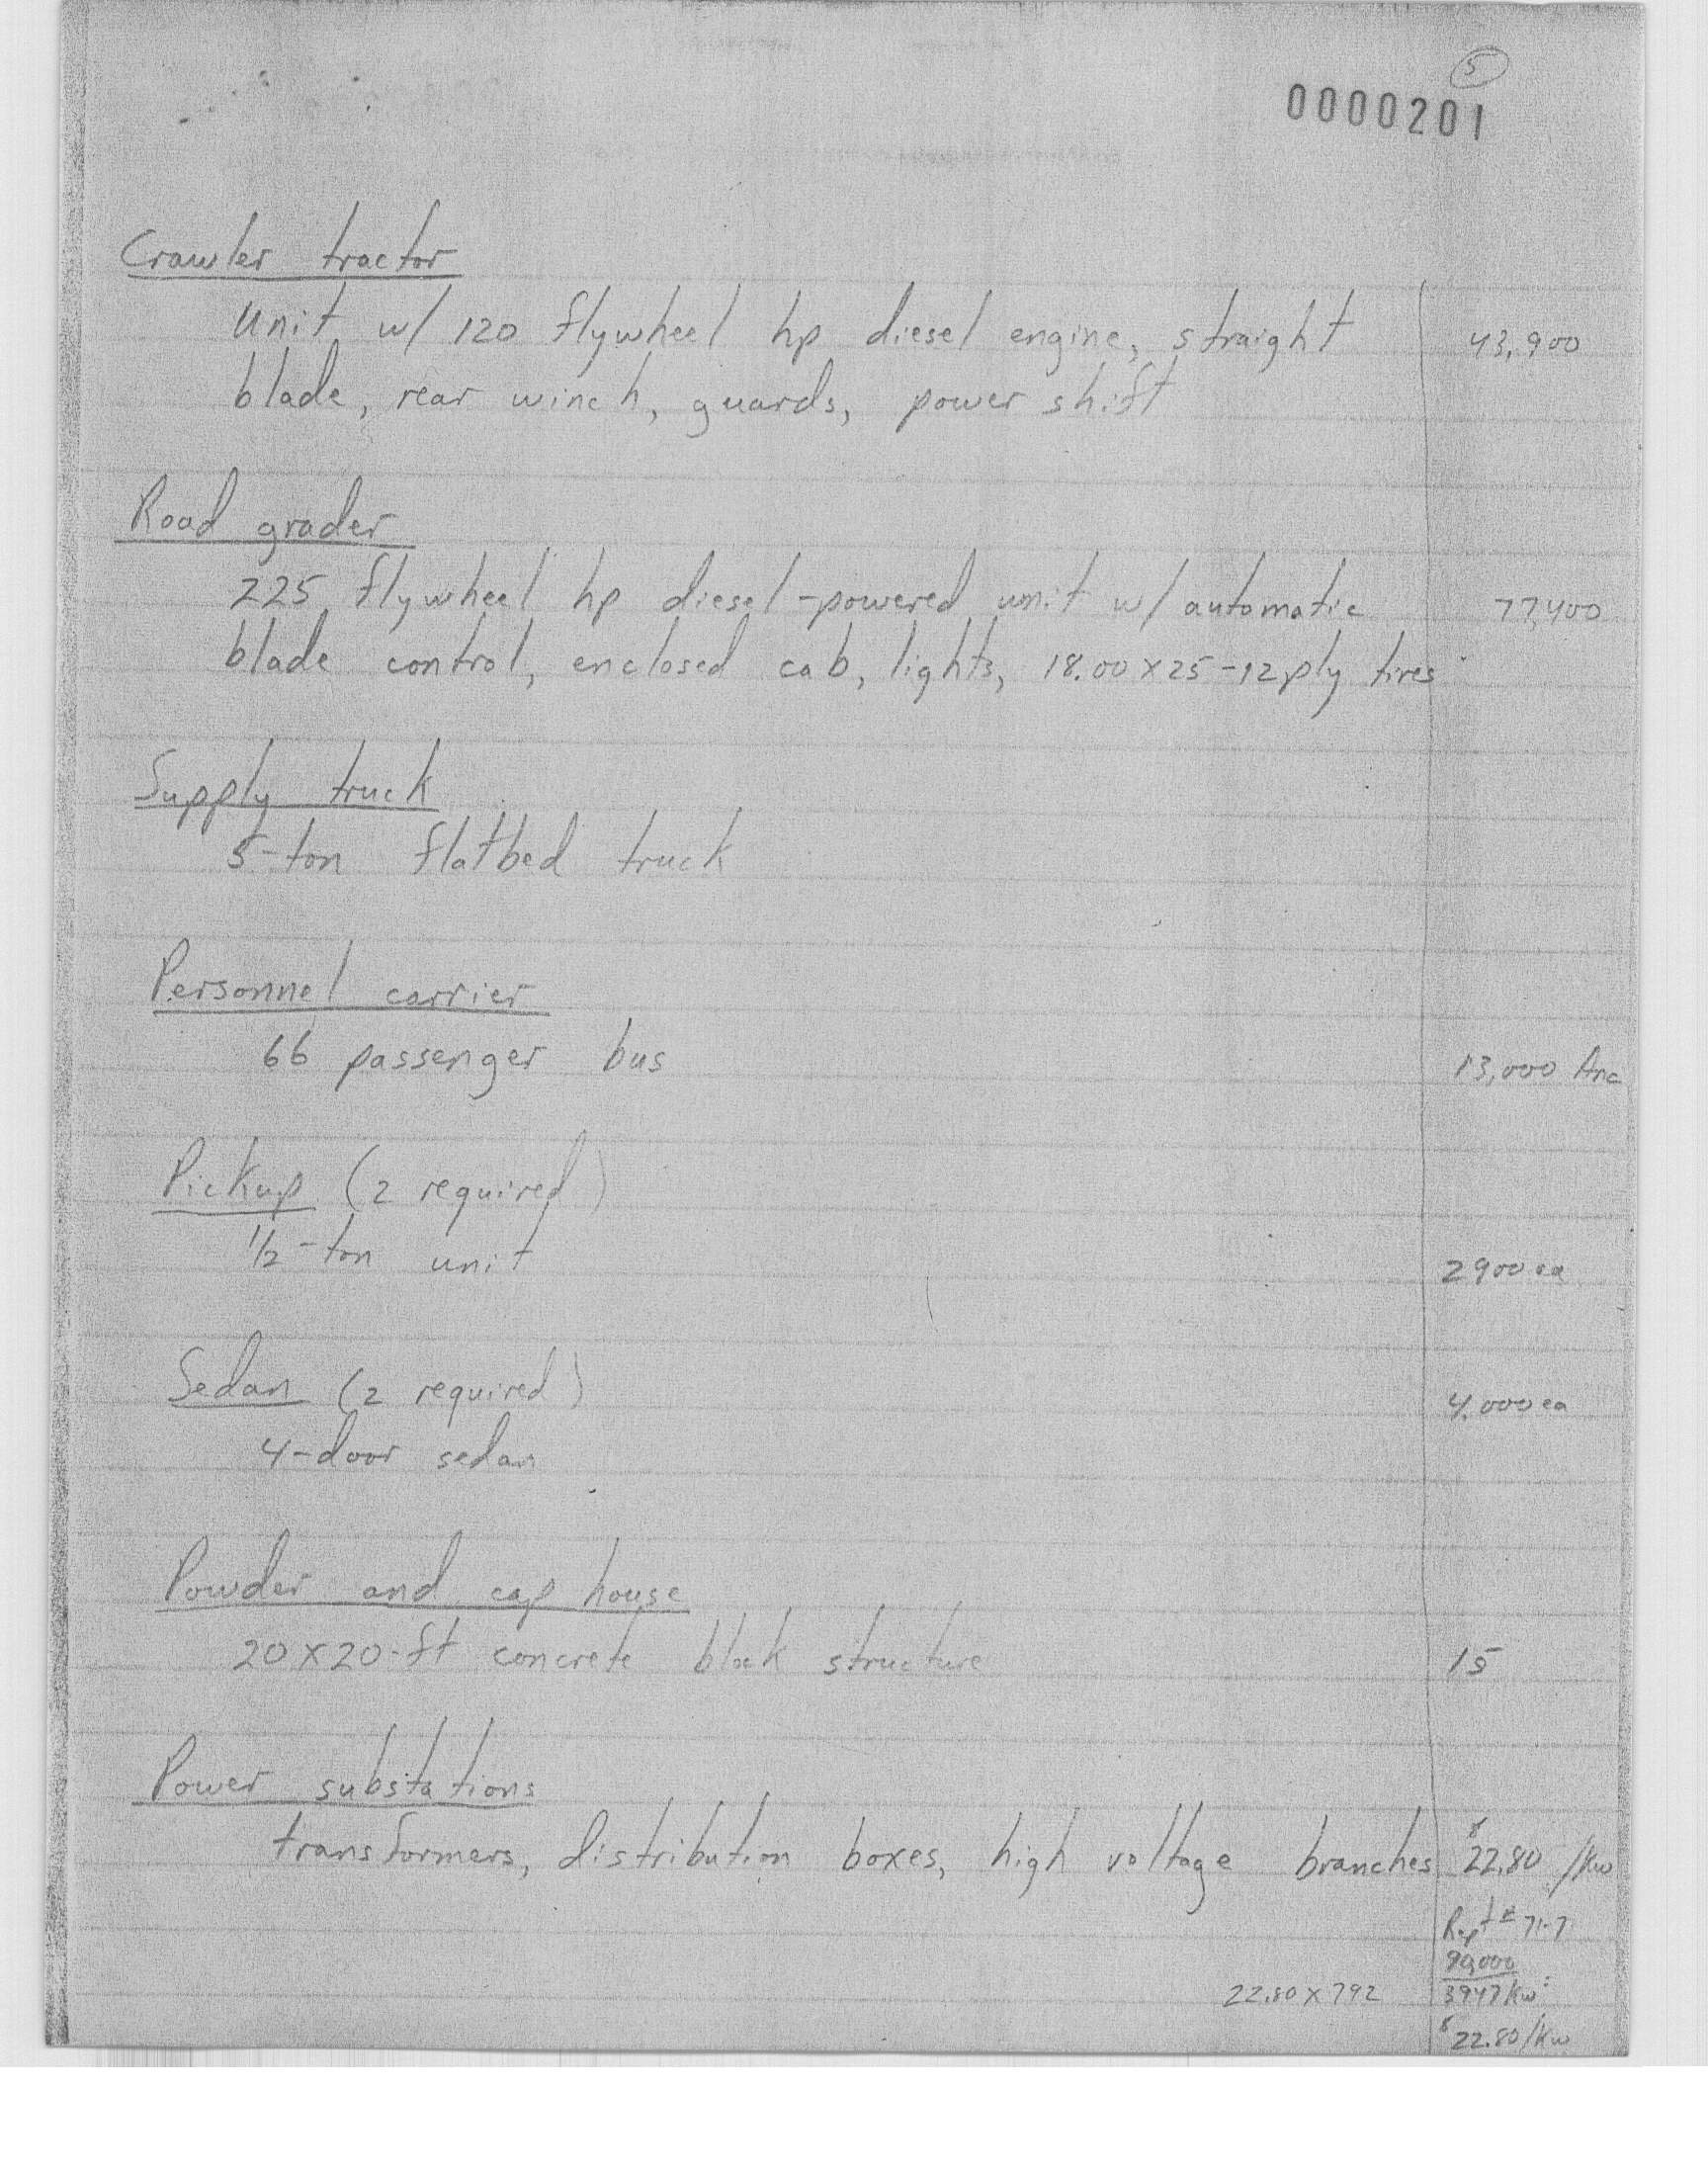 5
0000201
Crawler tractor
Unit w/ 120 flywheel hp diesel engine, straight 43,900
blade, rear winch, guards, power shift
Road grader
225 flywheel hp diesel-powered unit w/ automatic 77,400
blade control, enclosed cab, lights, 18.00 x 25-12 ply tires
Supply truck
5-ton flatbed truck
Personnel carrier
66 passenger bus 13,000 Anc
Pickup (2 required)
1/2-ton unit 2900 ea
Sedan (2 required) 4,000 ea
4-door sedan
Powder and cap house
20 x 20-ft concrete block structure 15
Power substations
transformers, distribution boxes, high voltage branches $22.80 /Kw
Rept # 71-7
90,000
22.80 x 792 3947 Kw =
$22.80/Kw